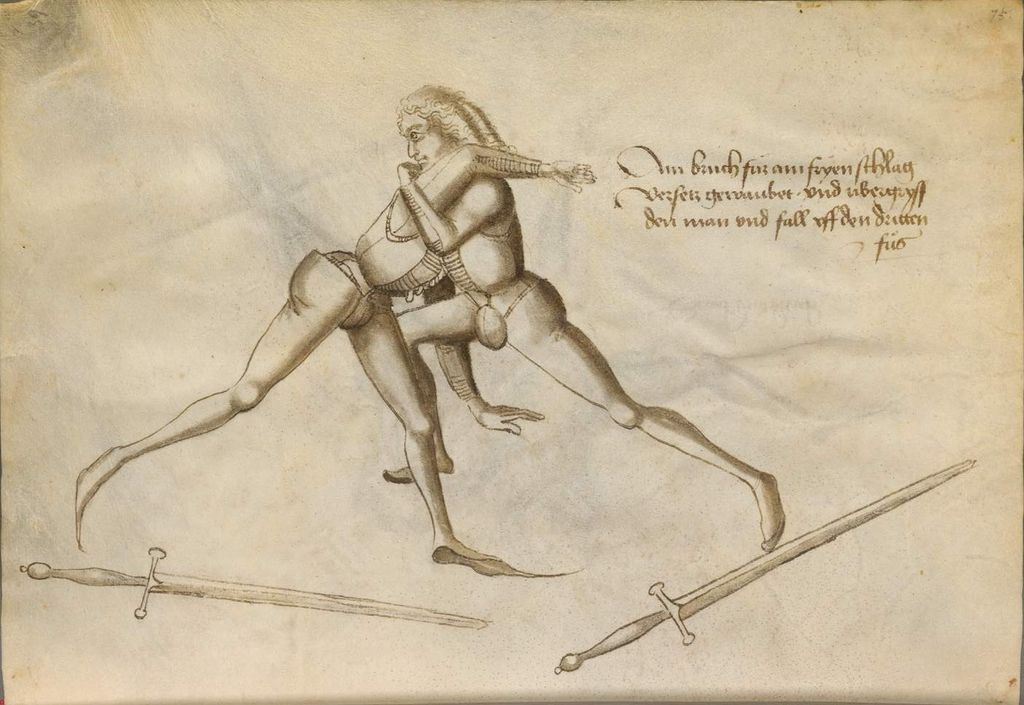 75
Ain bruch für ain fryen schlag
versetz gewaubet · und übergryff
den man und fall uff den dritten
fůs